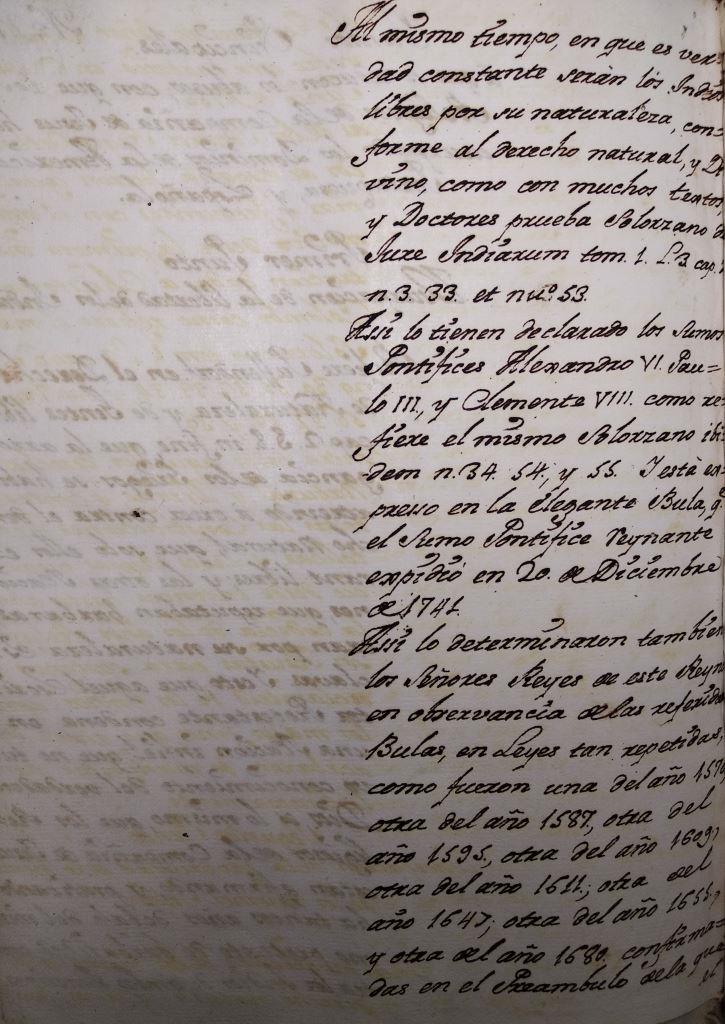 Al mismo tiempo, en que es ver=
dad constante serán los Indios
libres por su naturaleza, con=
forme al derecho natural, y Di
vino, como con muchos textos
y Doctores prueba Solorzano de
Jure Indiarum tom. 1. L. 3. cap.
n. 3. 33. et nu.º 53.
Assi lo tienen declarado los Sumos
Pontifices Alexandro VI. Pau=
lo III, y Clemente VIII. como re=
fiere el mismo Solorzano ibi
dem n. 34. 54, y 55. Iestà ex=
presso en la elegante Bula, q.
el Sumo Pontifice reynante
expidiò en 20. de Diciembre
de 1741.
Assi lo determinaron tambien
los Señores Reyes de este Reyn
en observancia de las referidas
Bulas, en Leyes tan repetidas,
como fueron una del año
otra del año 1587, otra del
año 1595, otra del año 1609;
otra del año 1611; otra del
año 1647; otra del año 1655,
y otra del año 1680. confirma=
das en el Preambulo de la que
el